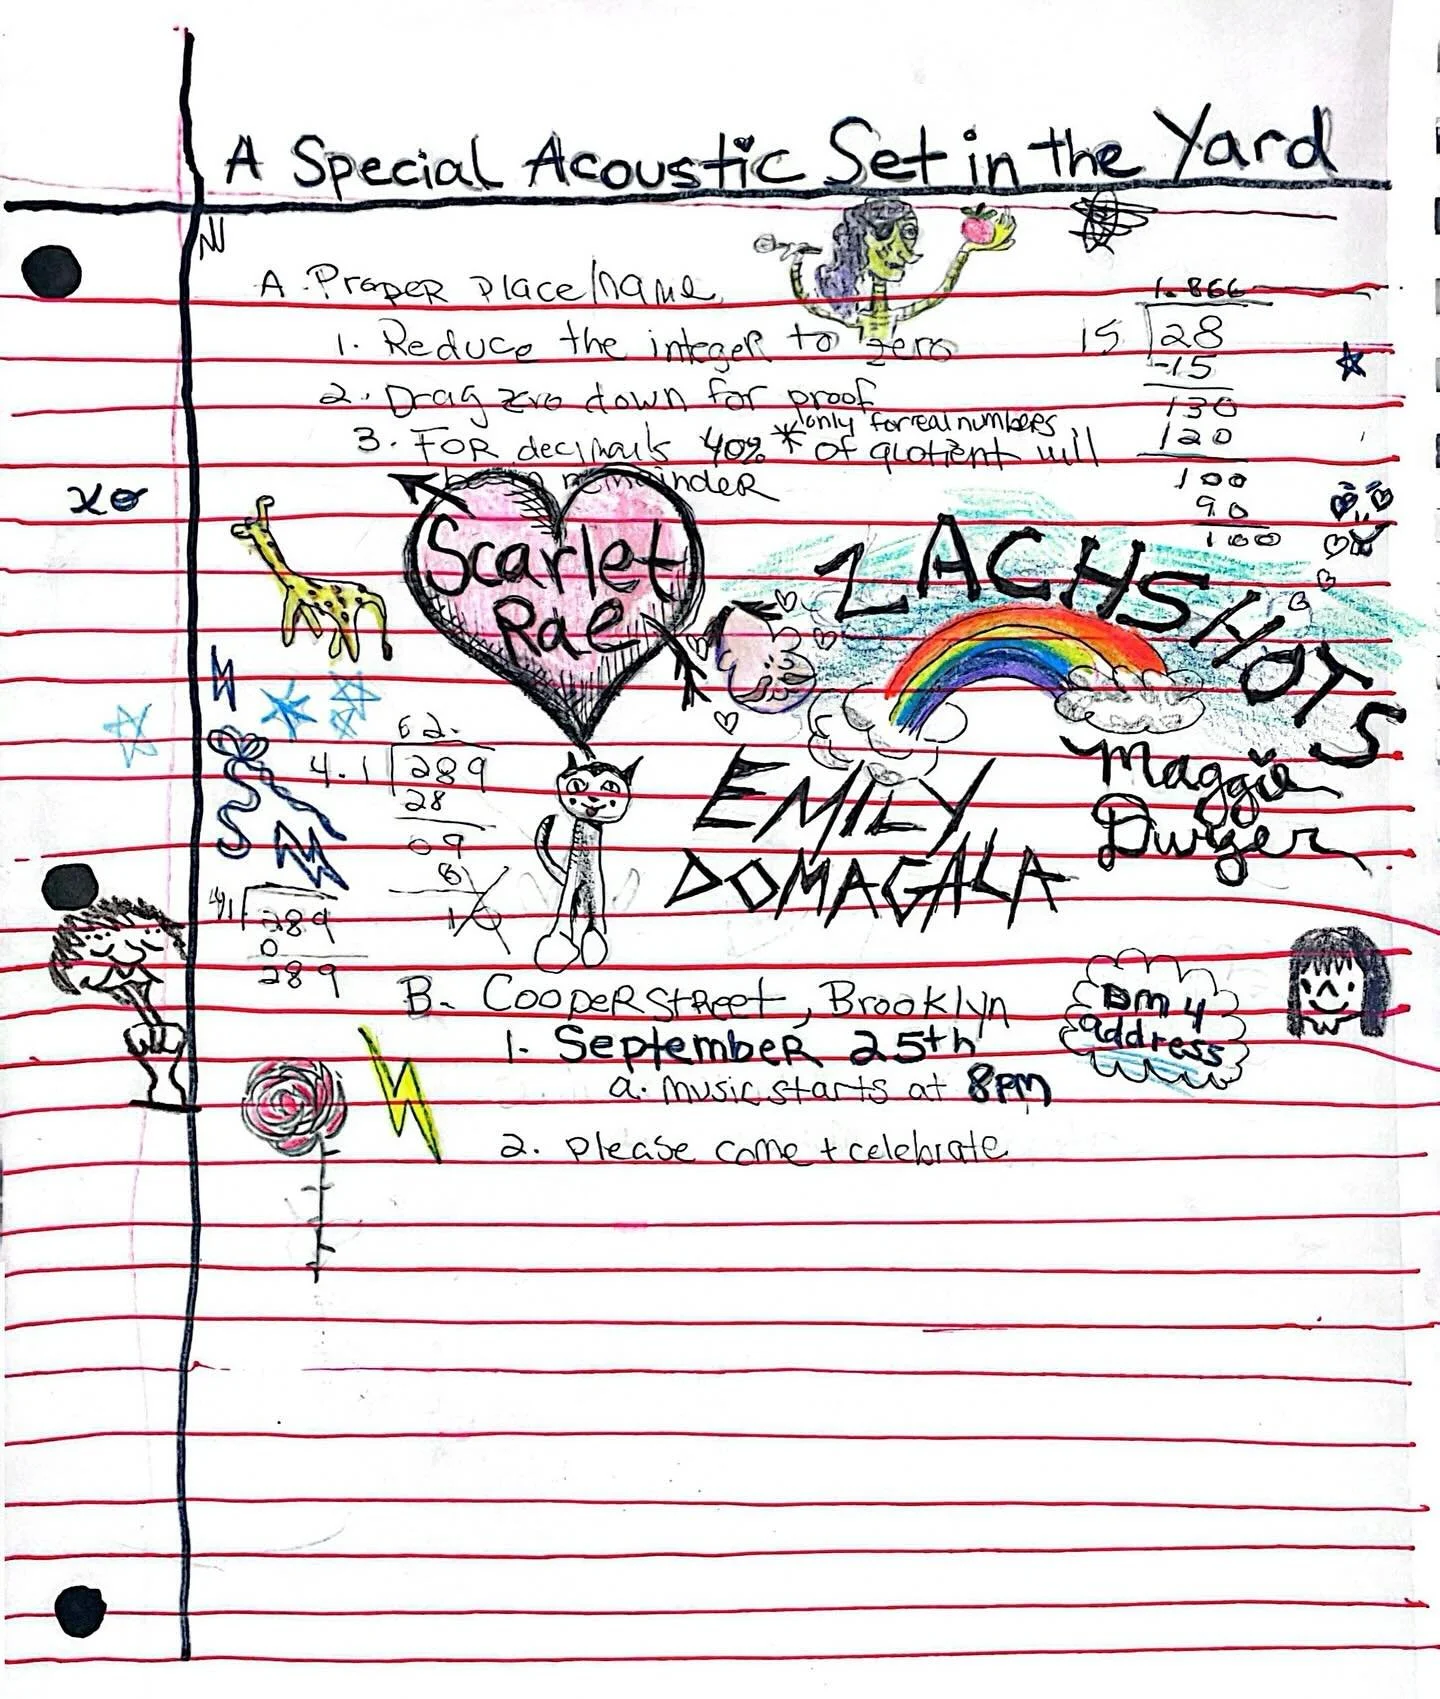 A Special Acoustic Set in the Yard
A. Proper place/name
1. Reduce the integer to zero
2. Drag zero down for proof
only for real numbers
3. For decimals 40% * of quotient will
remainder
1.866
15 28
-15
130
120
100
90
100
xo
Scarlet
Rae
ZACHSHOTS
62.
4.1 289
28
09
8
EMILY
DOMAGALA
Maggie
Dwyer
41 289
0
289
B. Cooper Street, Brooklyn
1. September 25th
a. music starts at 8pm
2. please come + celebrate
DM 4
address